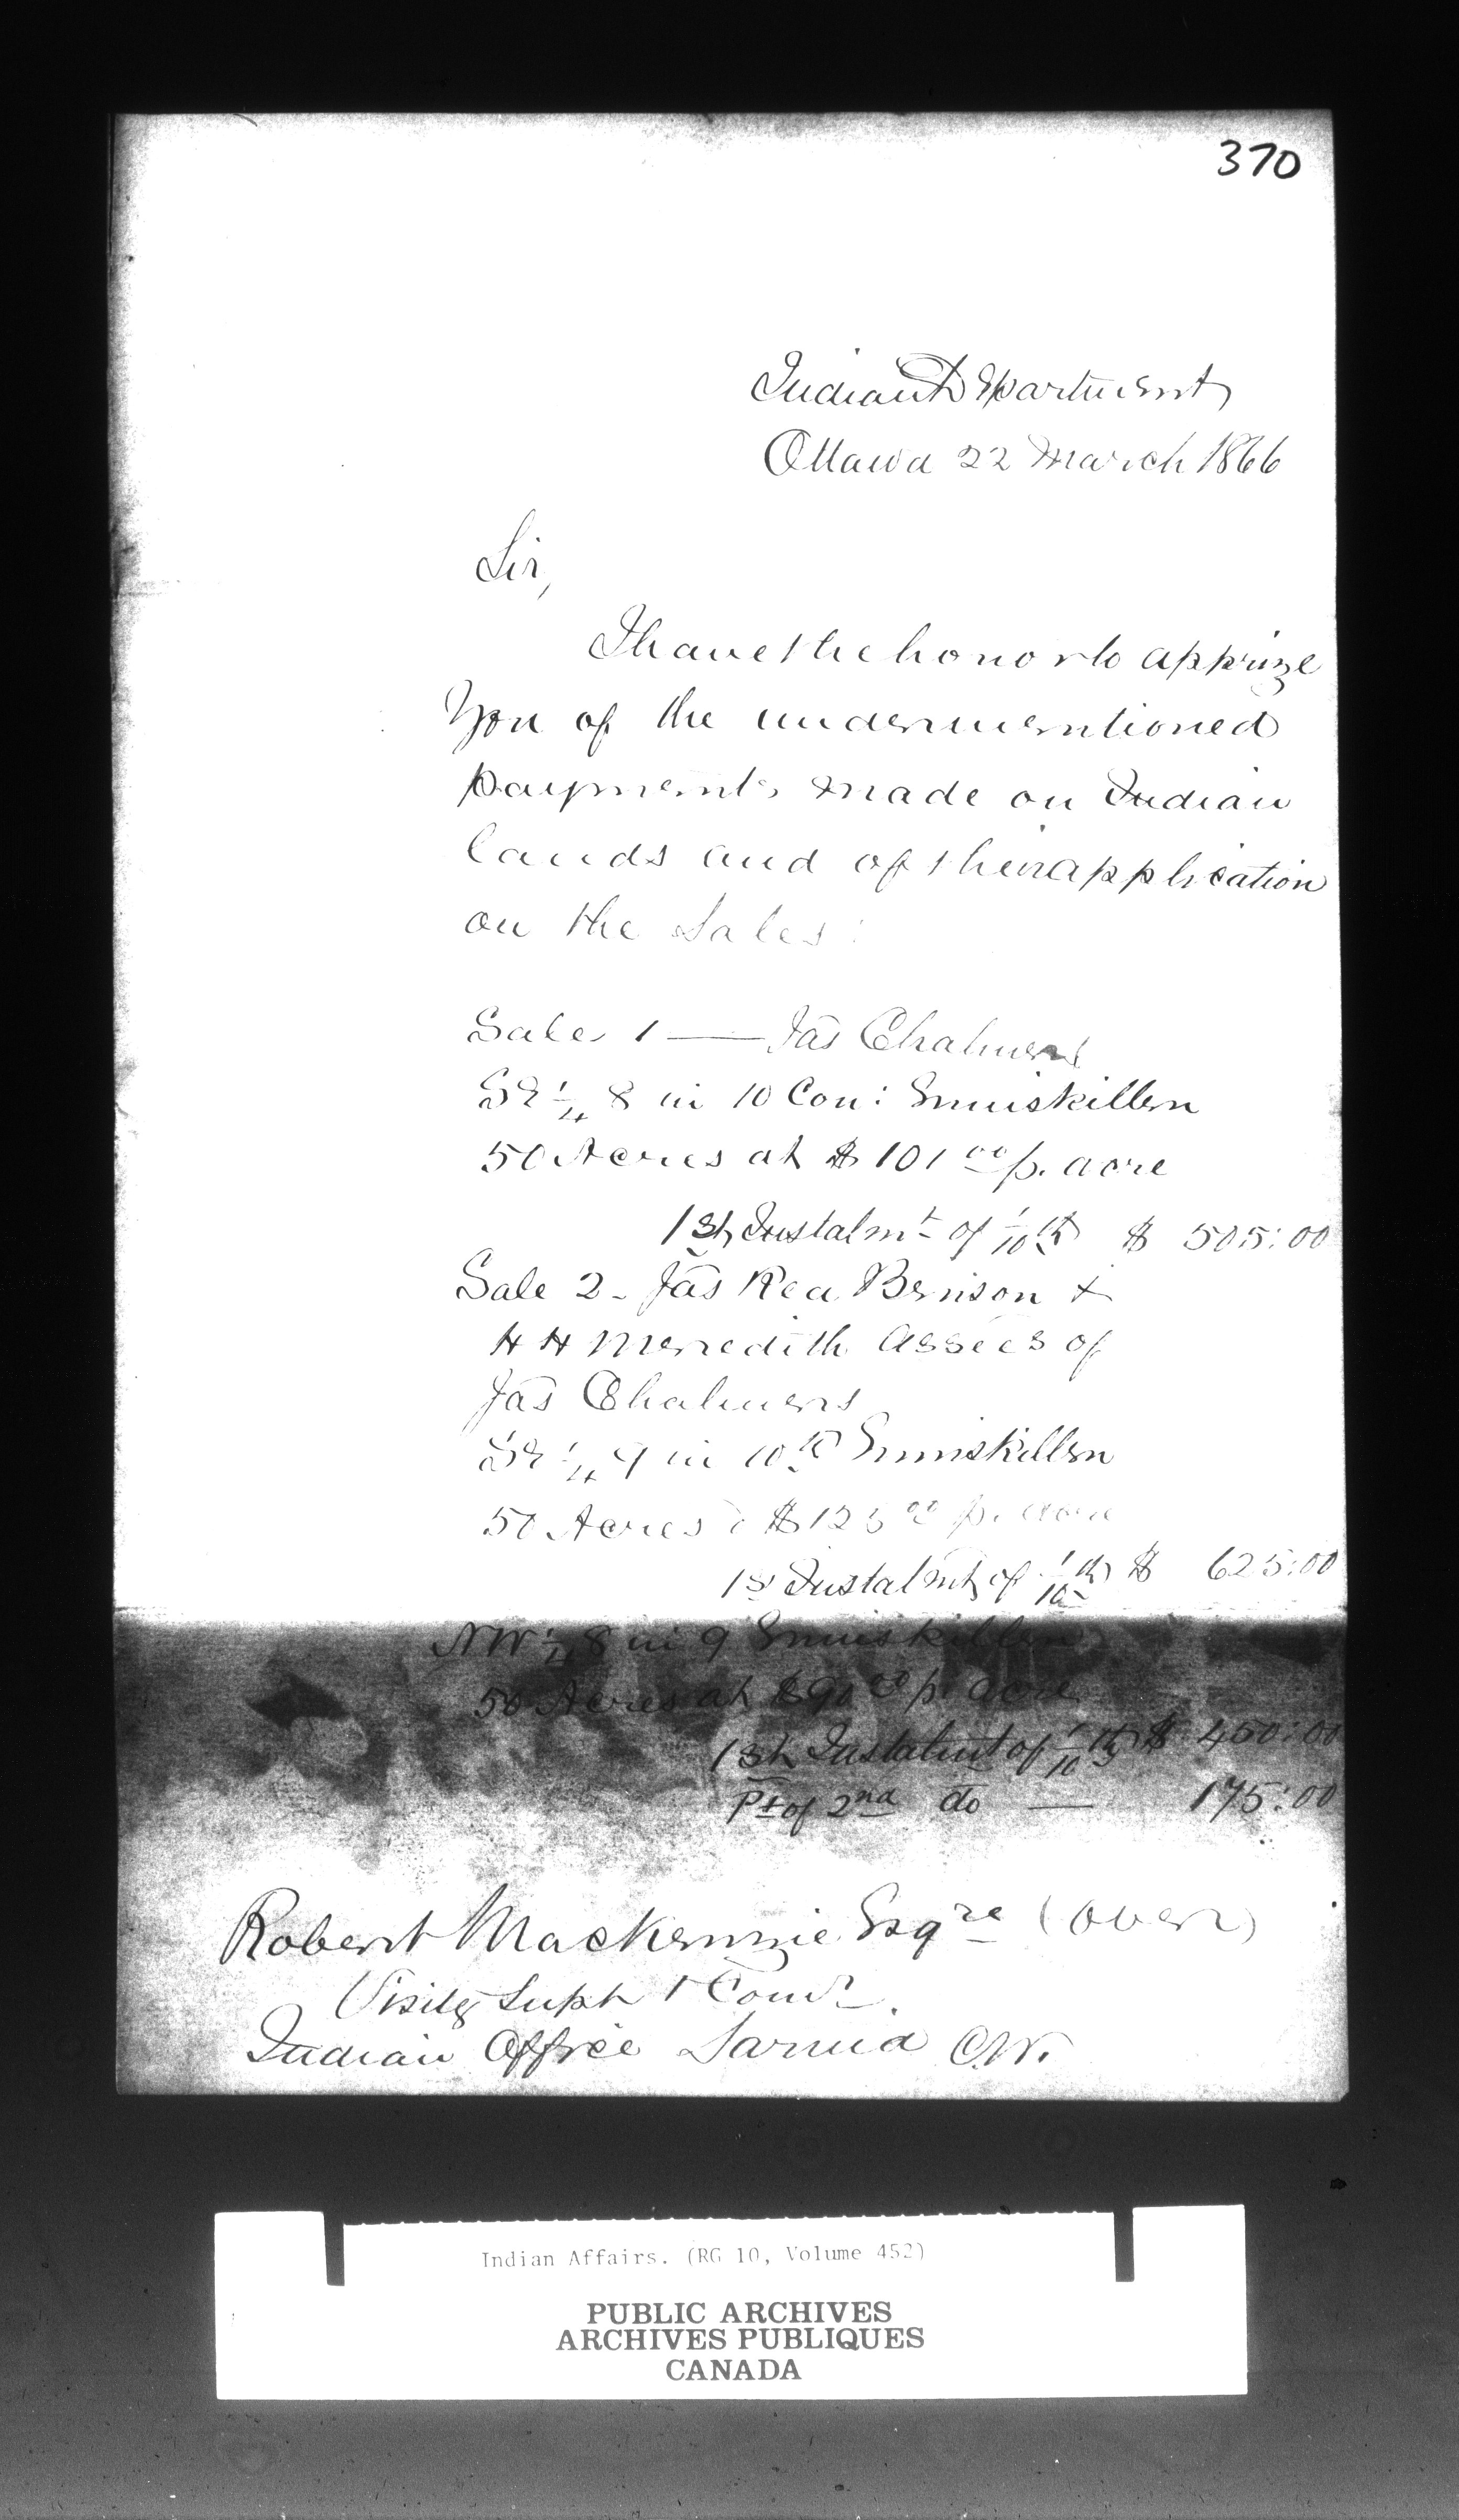 370
Indian Department
Ottawa 22 March 1866
Sir,
I have the honor to apprize
You of the undermentioned
payments made on Indian
lands and of their application
on the Sales:
Sale 1 — Jas Chalmers
SE 1/4 8 in 10 Con: Enniskillen
50 Acres at $101 00 p. acre
1st Instalmt of 1/10th $ 505:00
Sale 2 - Jas Rea Benson &
H H Meredith Assees of
Jas Chalmers
SE 1/4 9 in 10th Enniskillen
50 Acres $125 00 p. acre
1st Instalmt of 1/10th $ 625:00
NW 1/4 8 in 9 Enniskillen
50 Acres at $90 00 p. acre
1st Instalmt of 1/10th $ 450:00
Pt of 2nd do — 175:00
Robert Mackenzie Esqre (over)
Visitg Supt & Comr.
Indian Office Sarnia C.W.
Indian Affairs. (RG 10, Volume 452)
PUBLIC ARCHIVES
ARCHIVES PUBLIQUES
CANADA